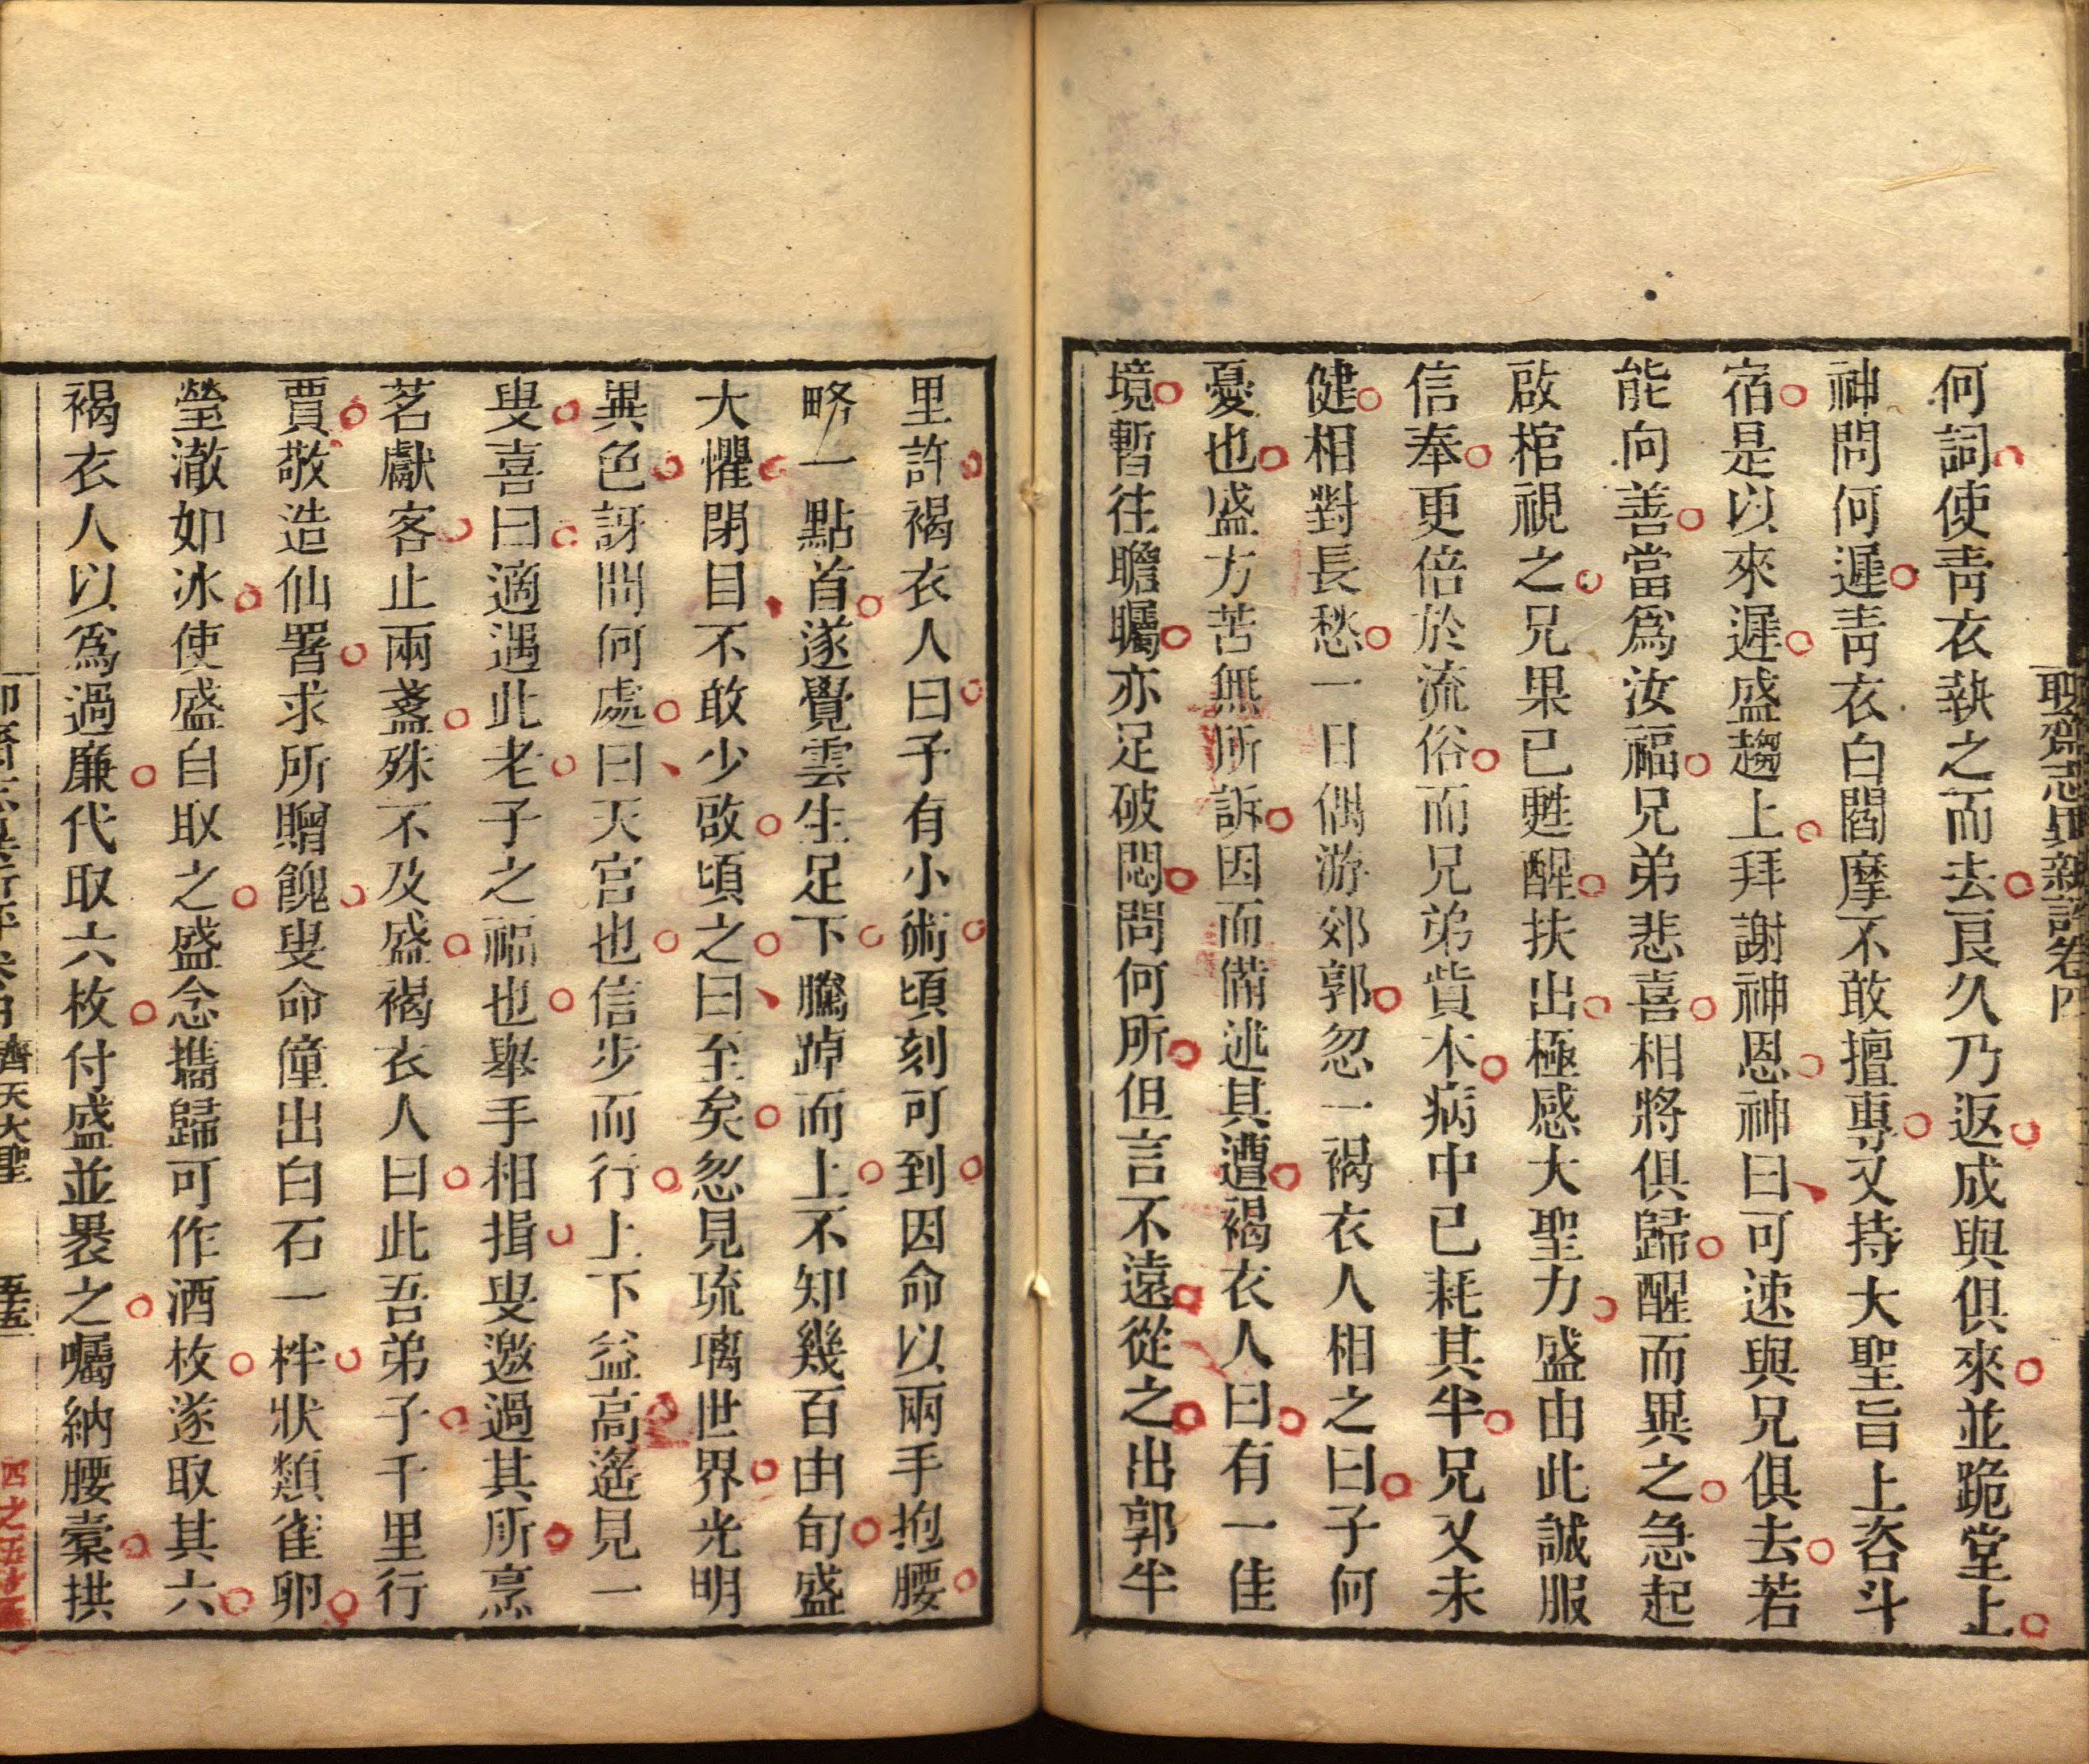 聊齋志異新評卷四
何詞使靑衣執之而去良久乃返成與俱來並跪堂上
神問何遲靑衣白閻摩不敢擅專又持大聖旨上咨斗
宿是以來遲盛趨上拜謝神恩神曰可速與兄俱去若
能向善當爲汝福兄弟悲喜相將俱歸醒而異之急起
啟棺視之兄果已甦醒扶出極感大聖力盛由此誠服
信奉更倍於流俗而兄弟貲本病中已耗其半兄又未
健相對長愁一日偶游郊郭忽一褐衣人相之曰子何
憂也盛方苦無所訴因而備述其遭褐衣人曰有一佳
境暫往瞻矚亦足破悶問何所但言不遠從之出郭半
里許褐衣人曰子有小術頃刻可到因命以兩手抱腰
略一點首遂覺雲生足下騰踔而上不知幾百由旬盛
大懼閉目不敢少啟頃之曰至矣忽見琉璃世界光明
異色訝問何處曰天宮也信步而行上下益高遙見一
叟喜曰適遇此老子之福也舉手相揖叟邀過其所烹
茗獻客止兩盞殊不及盛褐衣人曰此吾弟子千里行
賈敬造仙署求所贈餽叟命僮出白石一柈狀類雀卵
瑩澈如冰使盛自取之盛念攜歸可作酒枚遂取其六
褐衣人以爲過廉代取六枚付盛並裹之囑納腰橐拱
齊天大聖
四之五